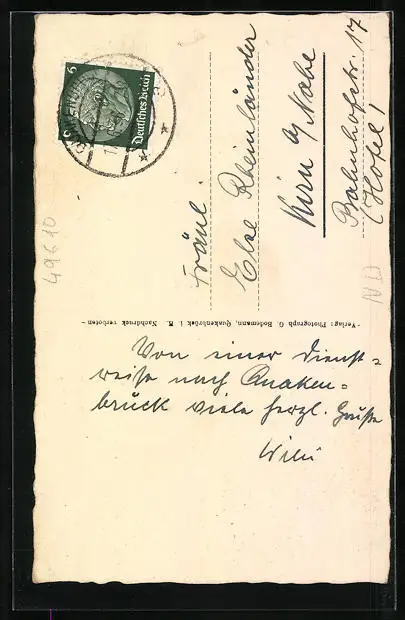 6
Deutsches Reich
Fräul.
Else Rheinländer
Kirn a/Nahe
Bahnhofstr. 17
(Hotel)
49610
- Verlag: Photograph G. Bodemann, Quakenbrück i. H. Nachdruck verboten -
Von einer Dienst=
reise nach Quaken=
brück viele herzl. Grüße
Willi